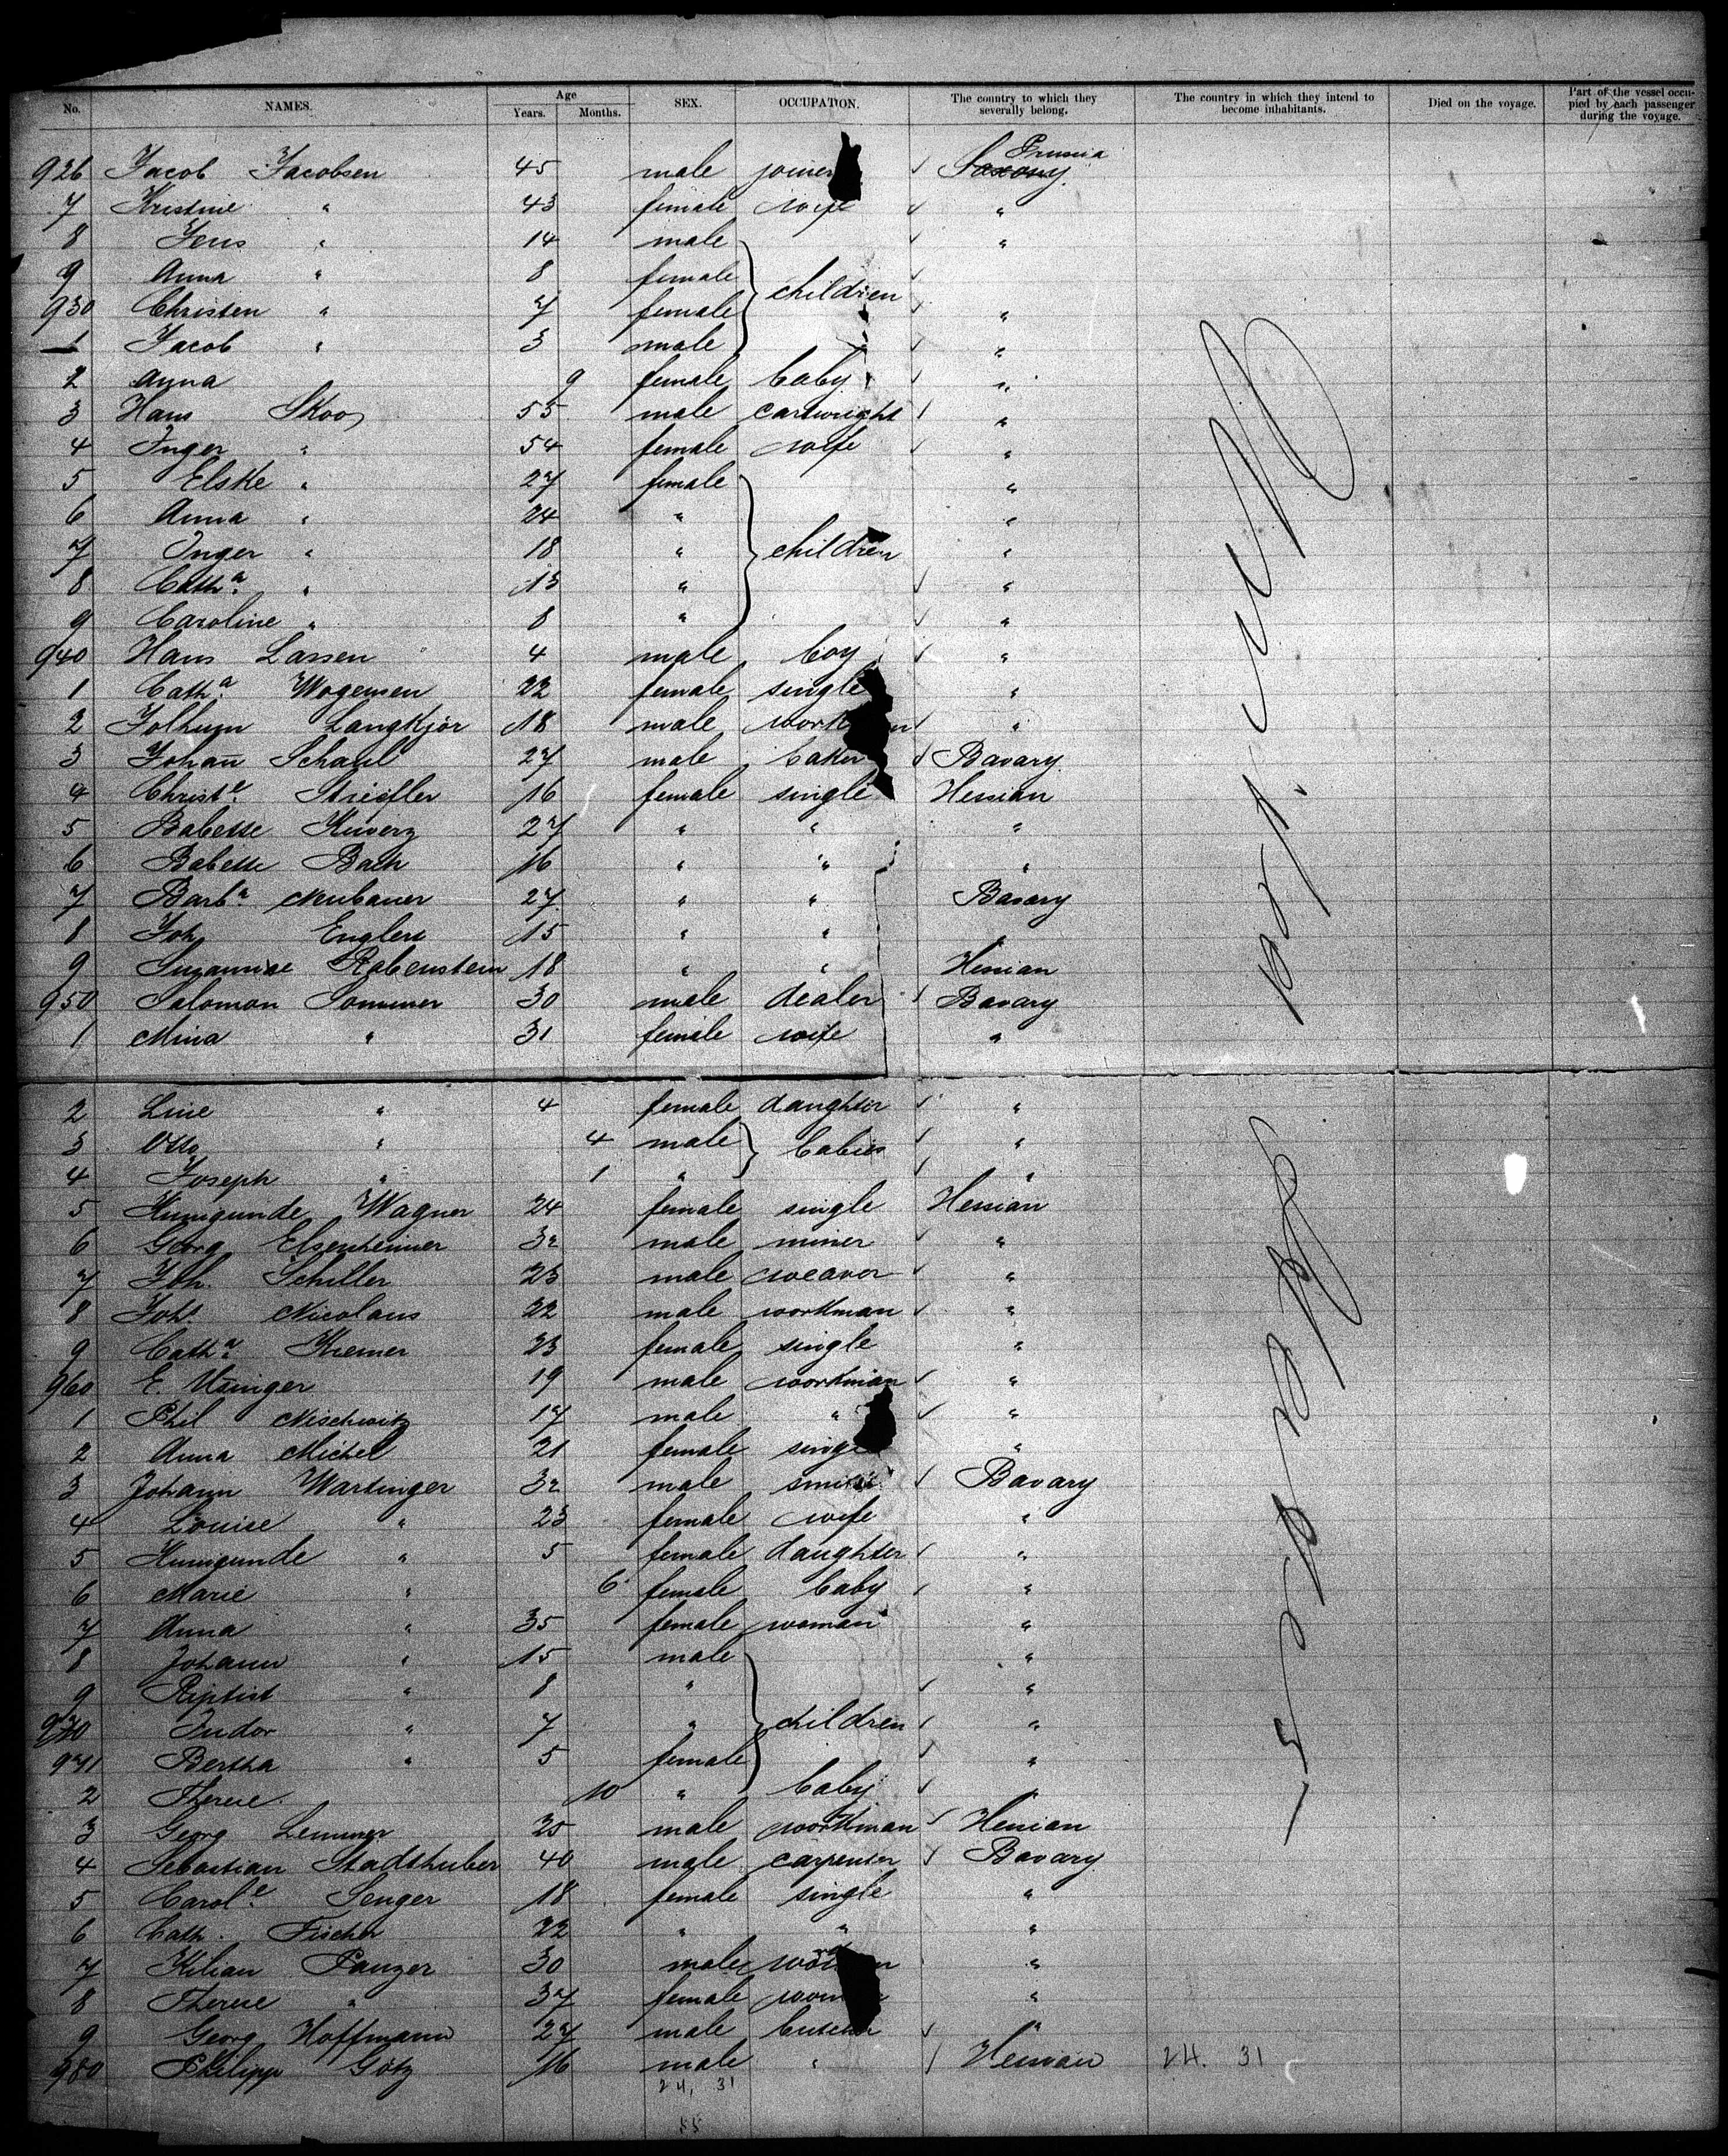 No. NAMES. Age Years. Months. SEX. OCCUPATION. The country to which they severally belong. The country in which they intend to become inhabitants. Died on the voyage. Part of the vessel occupied by each passenger during the voyage.
Prussia
926 Jacob Jacobsen 45 male joiner ✓ Saxony
7 Kristine " 43 female wife ✓ "
8 Jens " 14 male ✓ "
9 Anna " 8 female children ✓
930 Christen " 7 female ✓ "
1 Jacob " 3 male ✓ "
2 Anna 9 female baby ✓ "
3 Hans Skoo 55 male cartwright ✓ "
4 Inger " 54 female wife ✓ "
5 Elske " 27 female "
6 Anna " 24 " "
7 Inger " 18 " children "
8 Cath.a " 13 " ✓ "
9 Caroline " 8 " ✓ "
940 Hans Lassen 4 male boy ✓ "
1 Cath.a Wogensen 22 female single "
2 Langkjör 18 male ✓ "
3 Johan̄ Schaul 27 male baker ✓ Bavary
4 Christ.e Striefler 16 female single Hessian
5 Babette 27 " " "
6 Babette Bach 16 " " "
7 Barb.a Neubauer 27 " " Bavary
8 Joh Englert 15 " " "
9 Rabenstein 18 " " Hessian
950 Salomon Sommer 30 male dealer ✓ Bavary
1 Mina " 31 female wife "
2 Line " 4 female daughter ✓ "
3 Otto " 4 male babies ✓ "
4 Joseph " 1 " ✓ "
5 Kunigunde Wagner 24 female single Hessian
6 Georg Elsenheimer 32 male miner ✓ "
7 Joh. Schiller 23 male weaver ✓ "
8 Joh. Nicolaus 22 male workman ✓ "
9 Cath.a Kremer 23 female single "
960 E. Usinger 19 male workman ✓ "
1 Phil Nischwitz 17 male " ✓ "
2 Anna Michel 21 female single "
3 Johann Wartinger 32 male smith ✓ Bavary
4 Louise " 23 female wife "
5 Kunigunde " 5 female daughter ✓ "
6 Marie " 6 female baby ✓ "
7 Anna " 35 female woman "
8 Johann " 15 male "
9 " 8 " ✓ "
970 " 7 " children ✓ "
971 Bertha " 5 female ✓ "
2 Therese 10 " baby ✓ "
3 Georg Lemmer 25 male workman ✓ Hessian
4 Sebastian Stadthuber 40 male carpenter ✓ Bavary
5 Carol.e Senger 18 female single "
6 Cath. Fischer 22 " " "
7 Kilian Panzer 30 male "
8 Therese " 37 female "
9 Georg Hoffmann 27 male ✓ "
980 Philipp Götz 16 male " ✓ Hessian 24. 31
24, 31
55